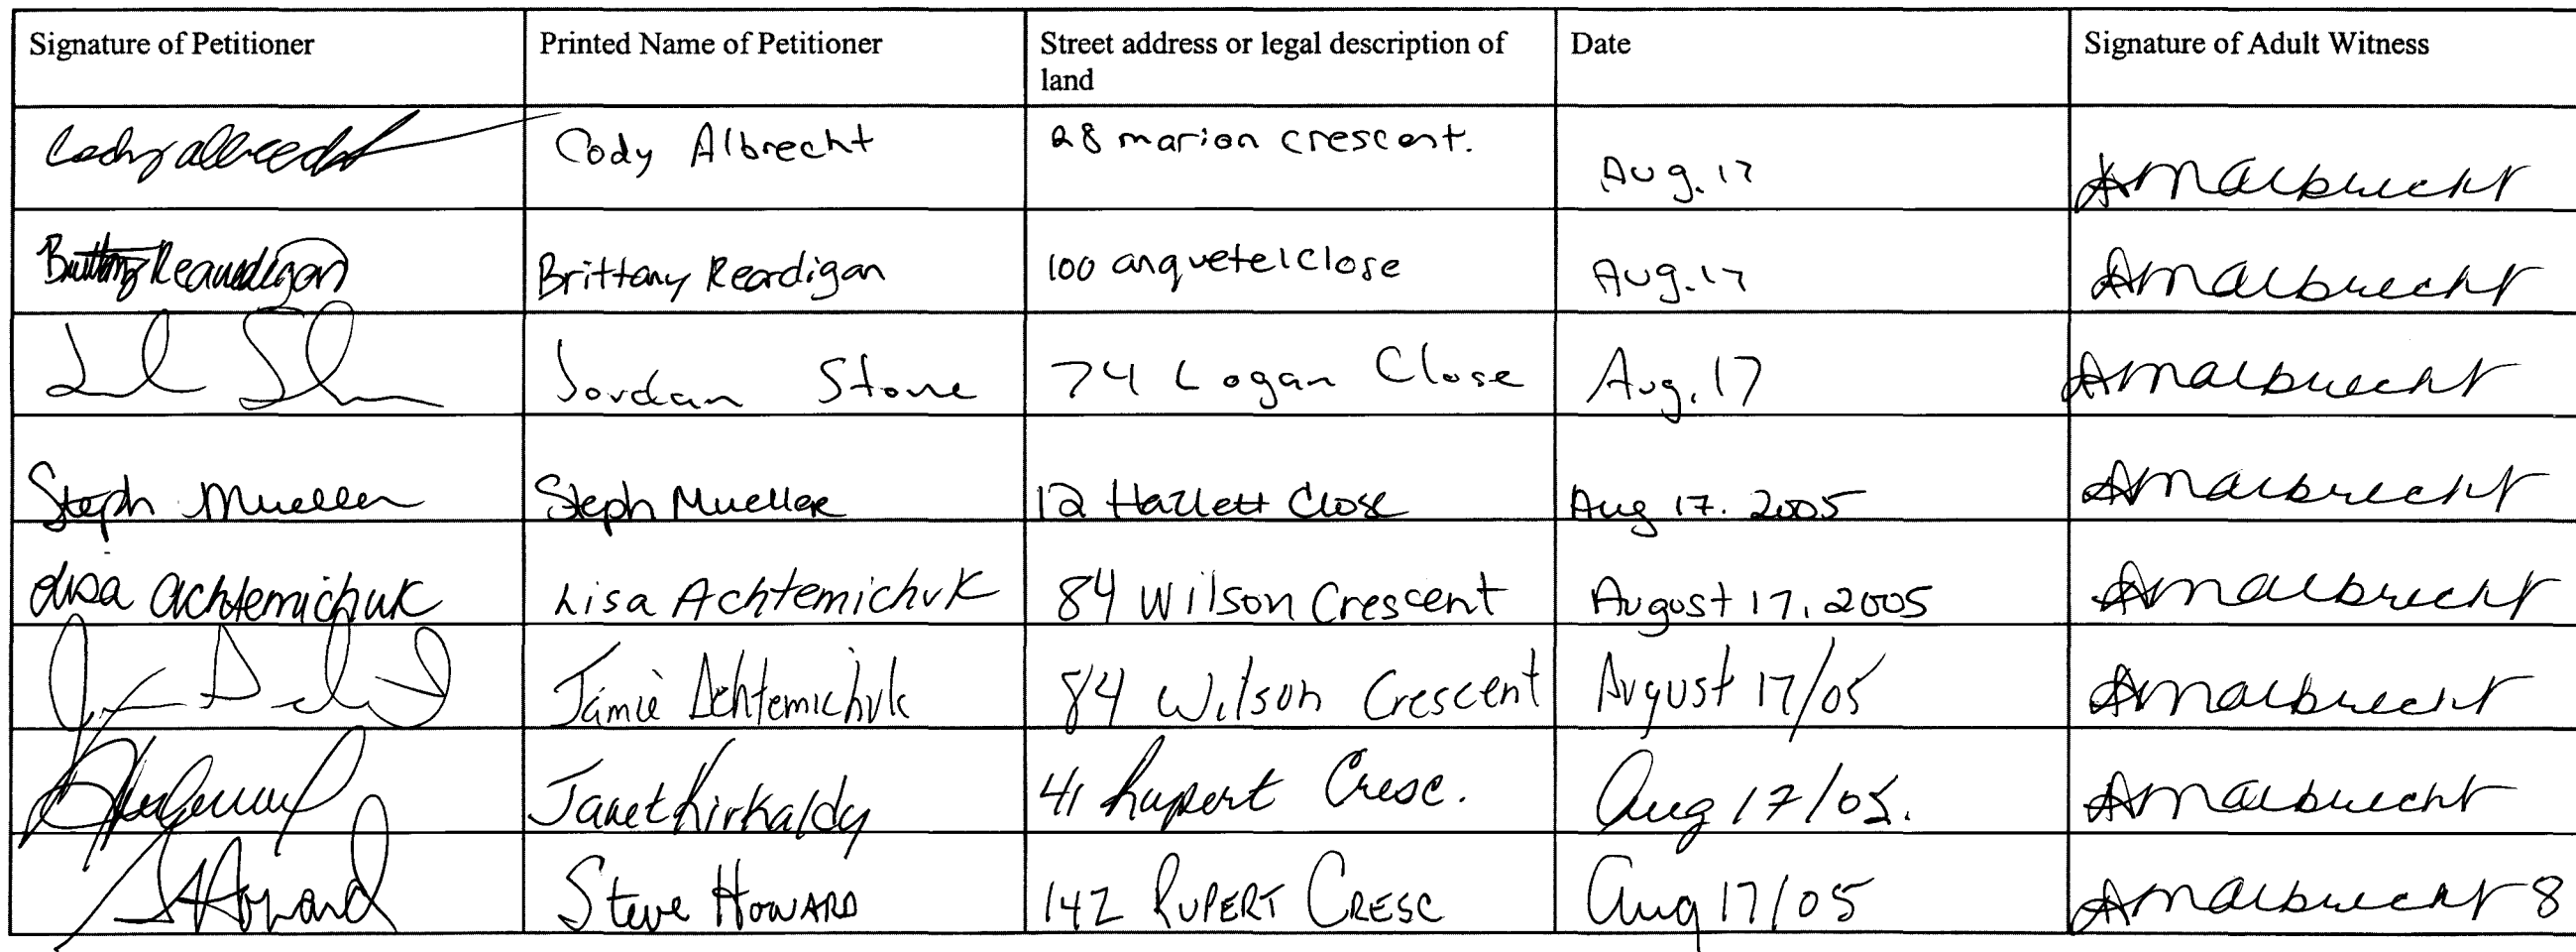 Signature of Petitioner Printed Name of Petitioner Street address or legal description of land Date Signature of Adult Witness
Cody Albrecht Cody Albrecht 28 marion crescent. Aug. 17 AMAlbrecht
Brittany Reardigan Brittany Reardigan 100 anquetel close Aug. 17 AMAlbrecht
Jordan Stone 74 Logan Close Aug. 17 AMAlbrecht
Steph Mueller Steph Mueller 12 Hazlett Close Aug 17. 2005 AMAlbrecht
Lisa Achtemichuk Lisa Achtemichuk 84 Wilson Crescent August 17, 2005 AMAlbrecht
Jamie Achtemichuk 84 Wilson Crescent August 17/05 AMAlbrecht
Janet Kirkaldy 41 Rupert Cresc. Aug 17/05. AMAlbrecht
S Howard Steve Howard 142 RUPERT CRESC Aug 17/05 AMAlbrecht 8